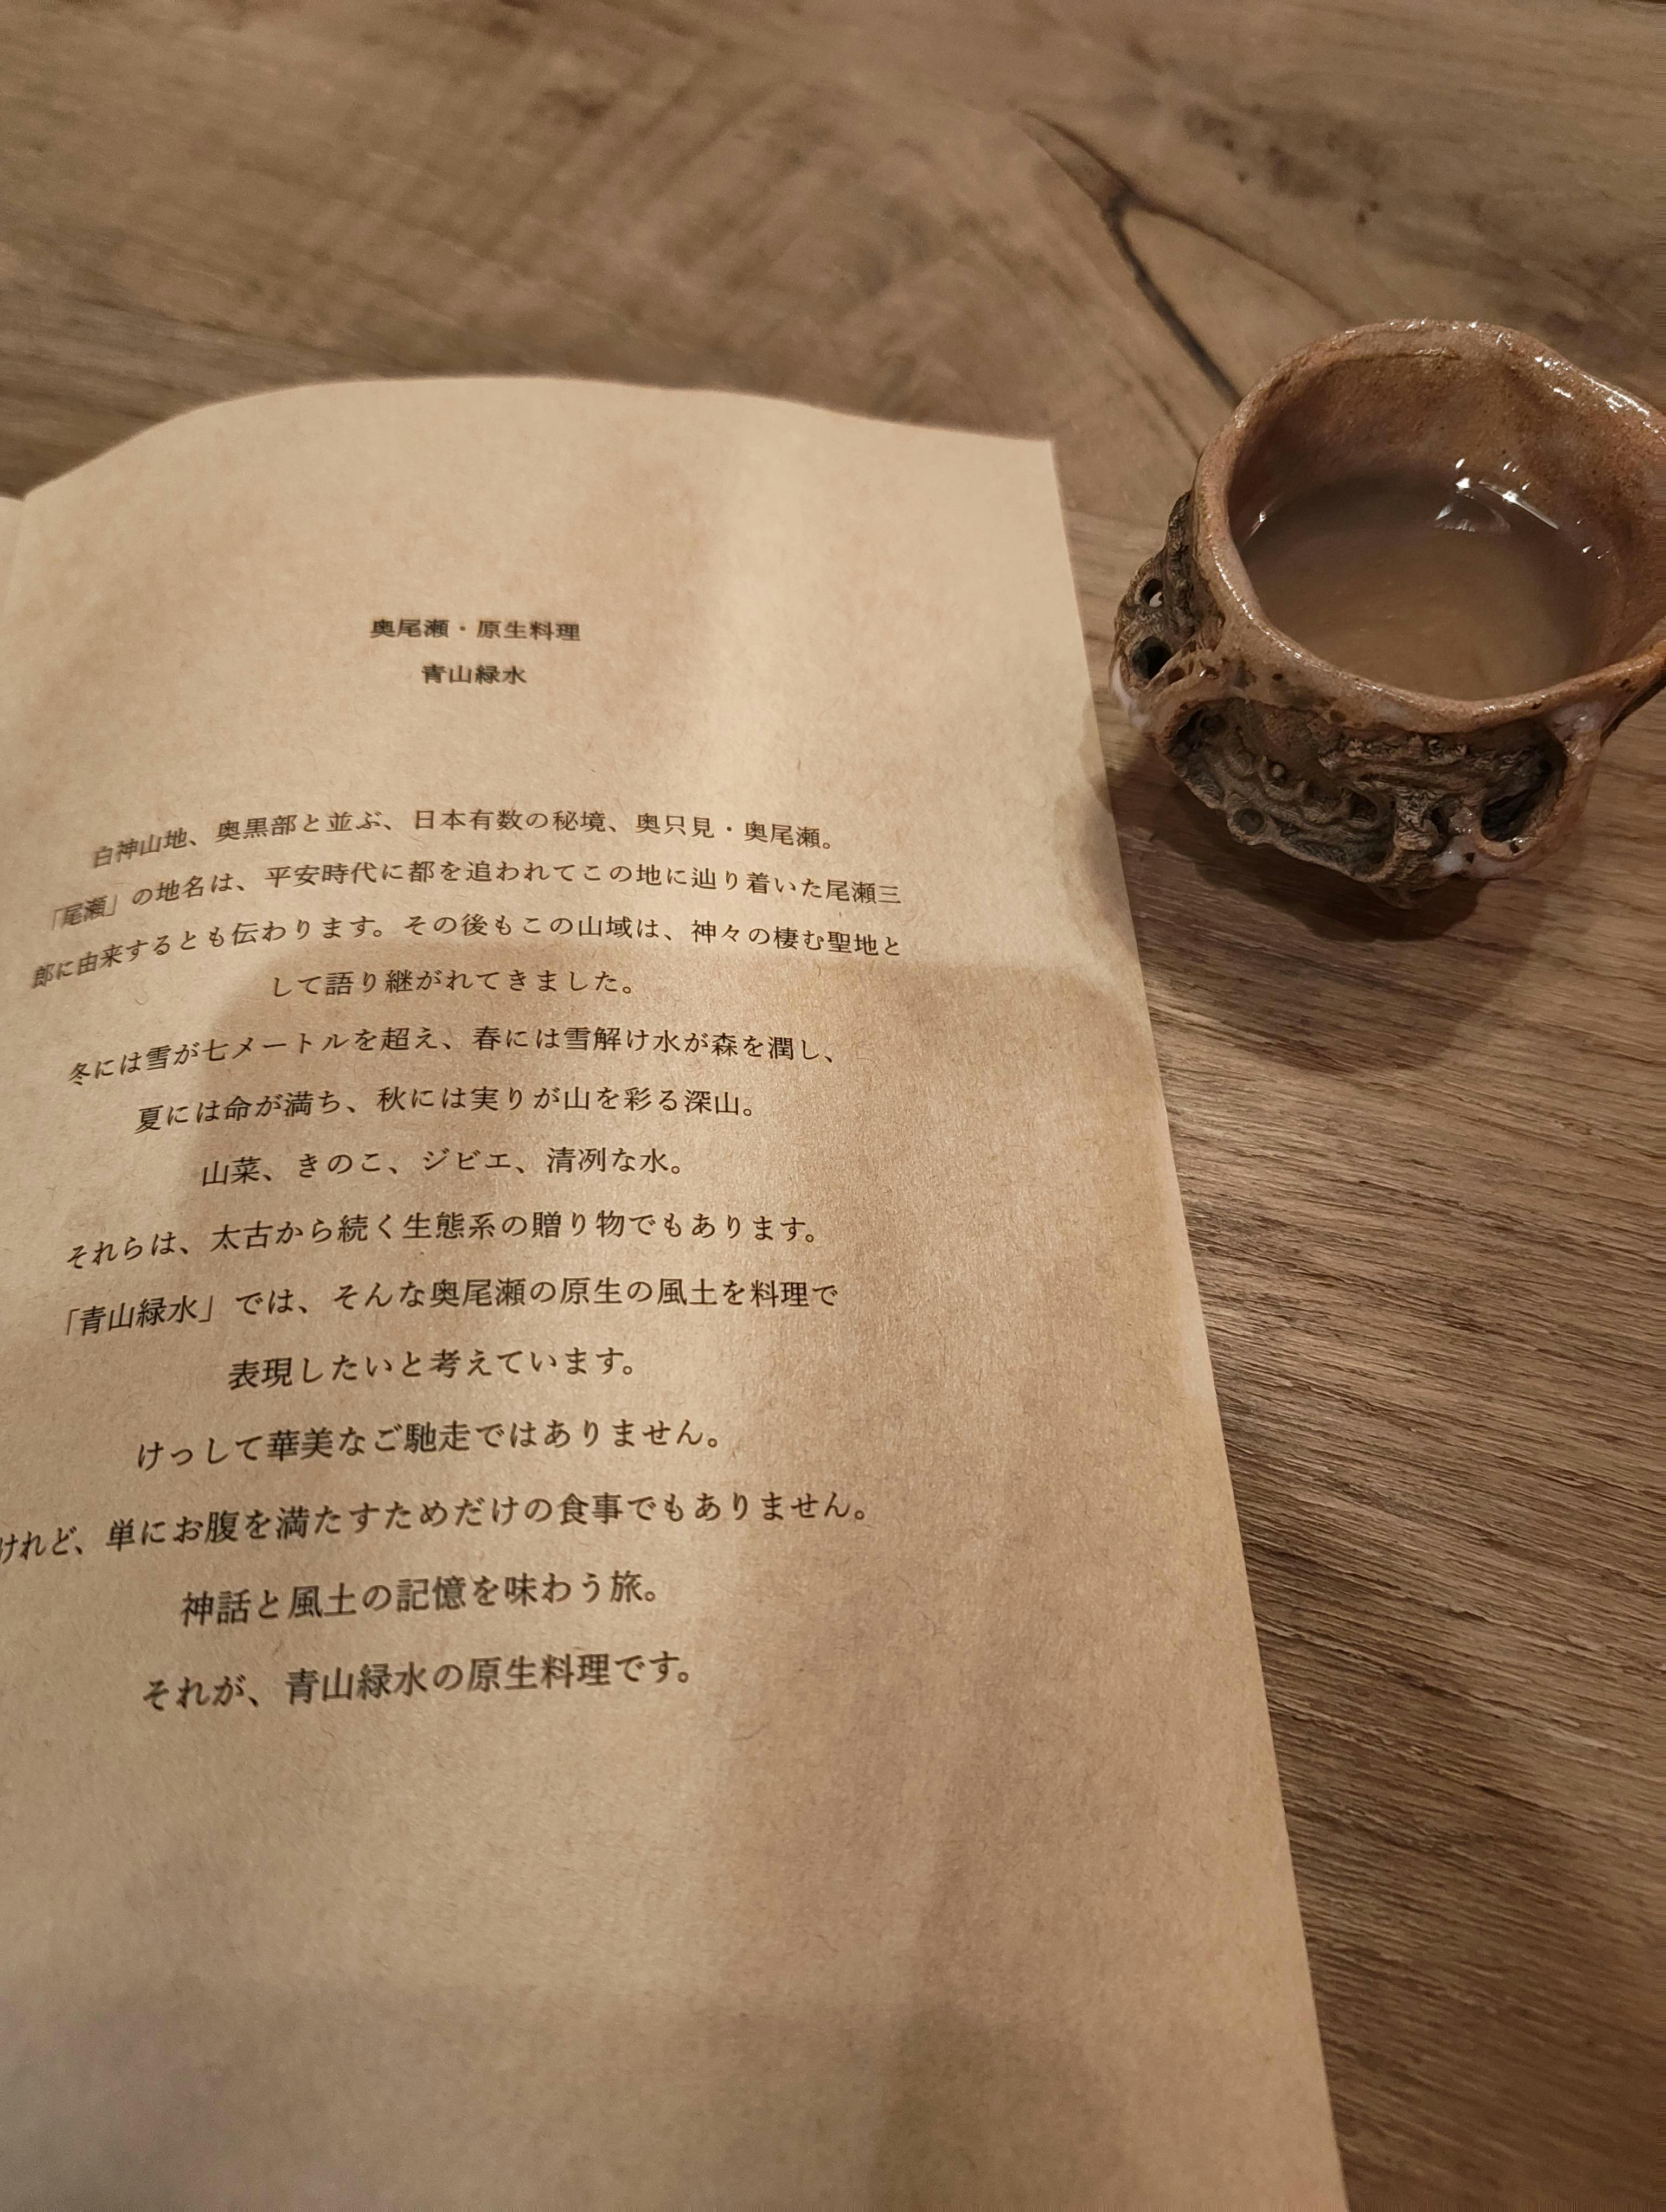 奥尾瀬・原生料理
青山緑水
白神山地、奥黒部と並ぶ、日本有数の秘境、奥只見・奥尾瀬。
「尾瀬」の地名は、平安時代に都を追われてこの地に辿り着いた尾瀬三
郎に由来するとも伝わります。その後もこの山域は、神々の棲む聖地と
して語り継がれてきました。
冬には雪が七メートルを超え、春には雪解け水が森を潤し、
夏には命が満ち、秋には実りが山を彩る深山。
山菜、きのこ、ジビエ、清冽な水。
それらは、太古から続く生態系の贈り物でもあります。
「青山緑水」では、そんな奥尾瀬の原生の風土を料理で
表現したいと考えています。
けっして華美なご馳走ではありません。
けれど、単にお腹を満たすためだけの食事でもありません。
神話と風土の記憶を味わう旅。
それが、青山緑水の原生料理です。